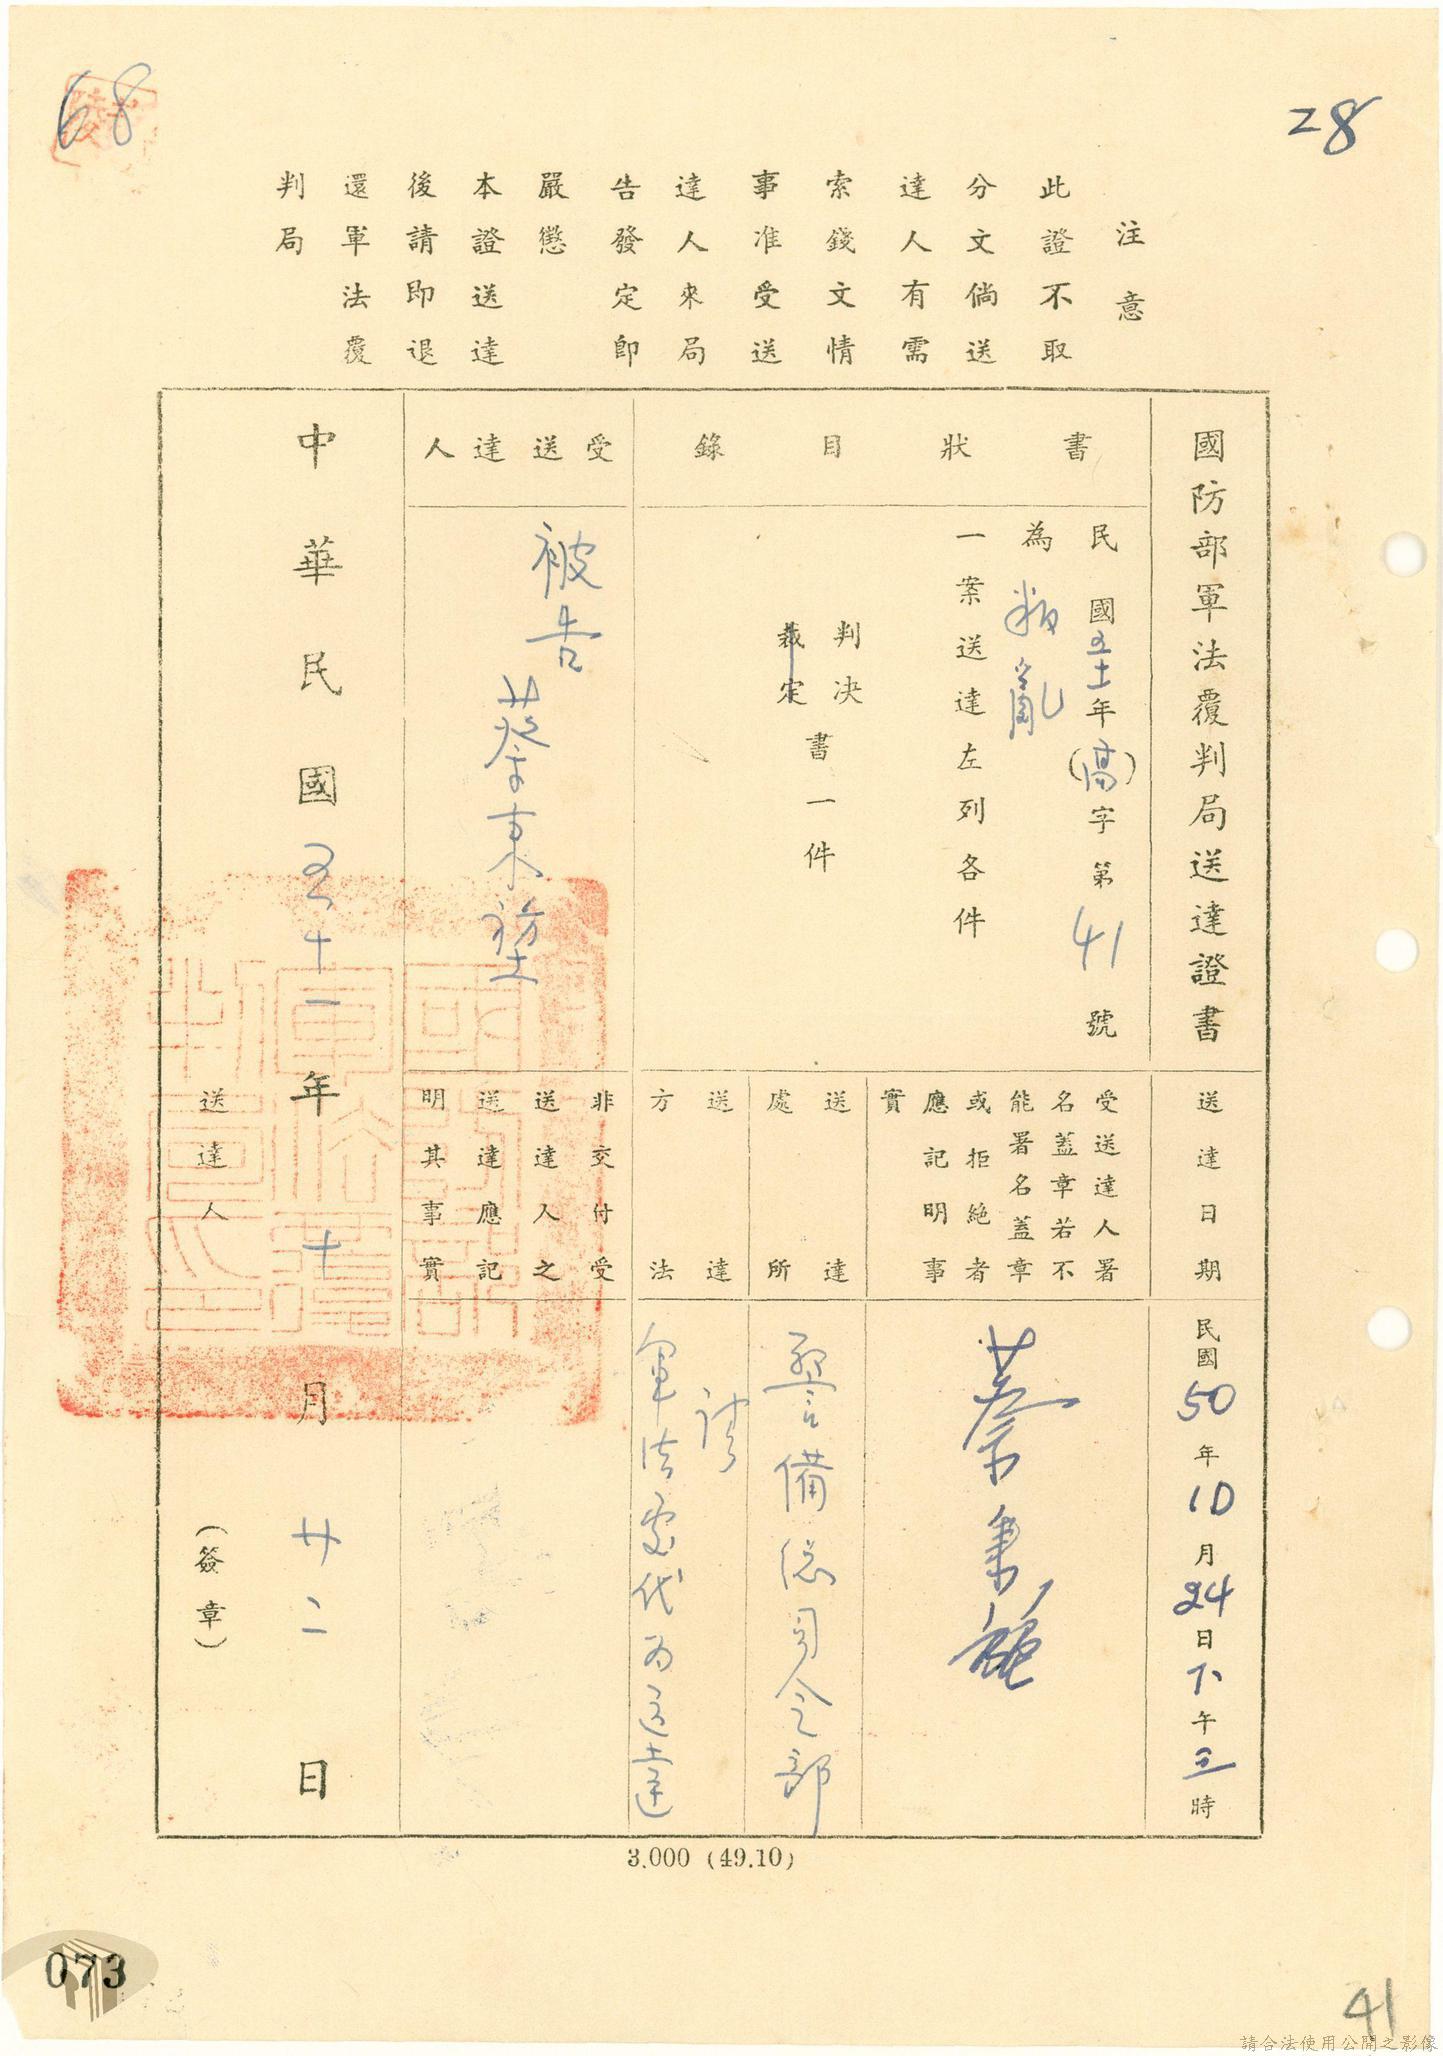 68
28
注意
此證不取
分文倘送
達人有需
索錢文情
事准受送
達人來局
告發定即
嚴懲
本證送達
後請即退
還軍法覆
判局
國防部軍法覆判局送達證書
書狀目錄
民國五十一年(高)字第41號
為叛亂
一案送達左列各件
判決
裁定
書一件
受送達人
被告
蔡東
中華民國五十一年十月廿二日
送達日期
民國50年10月24日下午三時
受送達人署
名蓋章若不
能署名蓋章
或拒絕者
應記明事
實
蔡東
送達
處所
警備總司令部
送達
方法
請
軍法處代為送達
非交付受
送達人之
送達應記
明其事實
送達人
(簽章)
3.000 (49.10)
073
41
請合法使用公開之影像